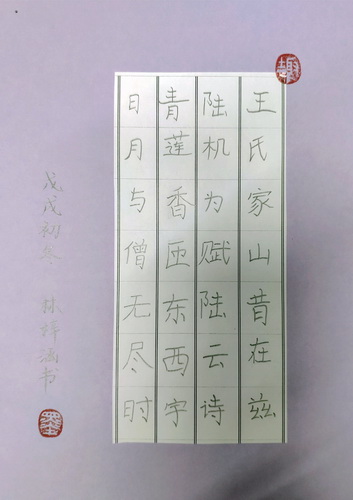 王氏家山昔在兹
陆机为赋陆云诗
青莲香匝东西宇
日月与僧无尽时
戊戌初冬 林梓涵书